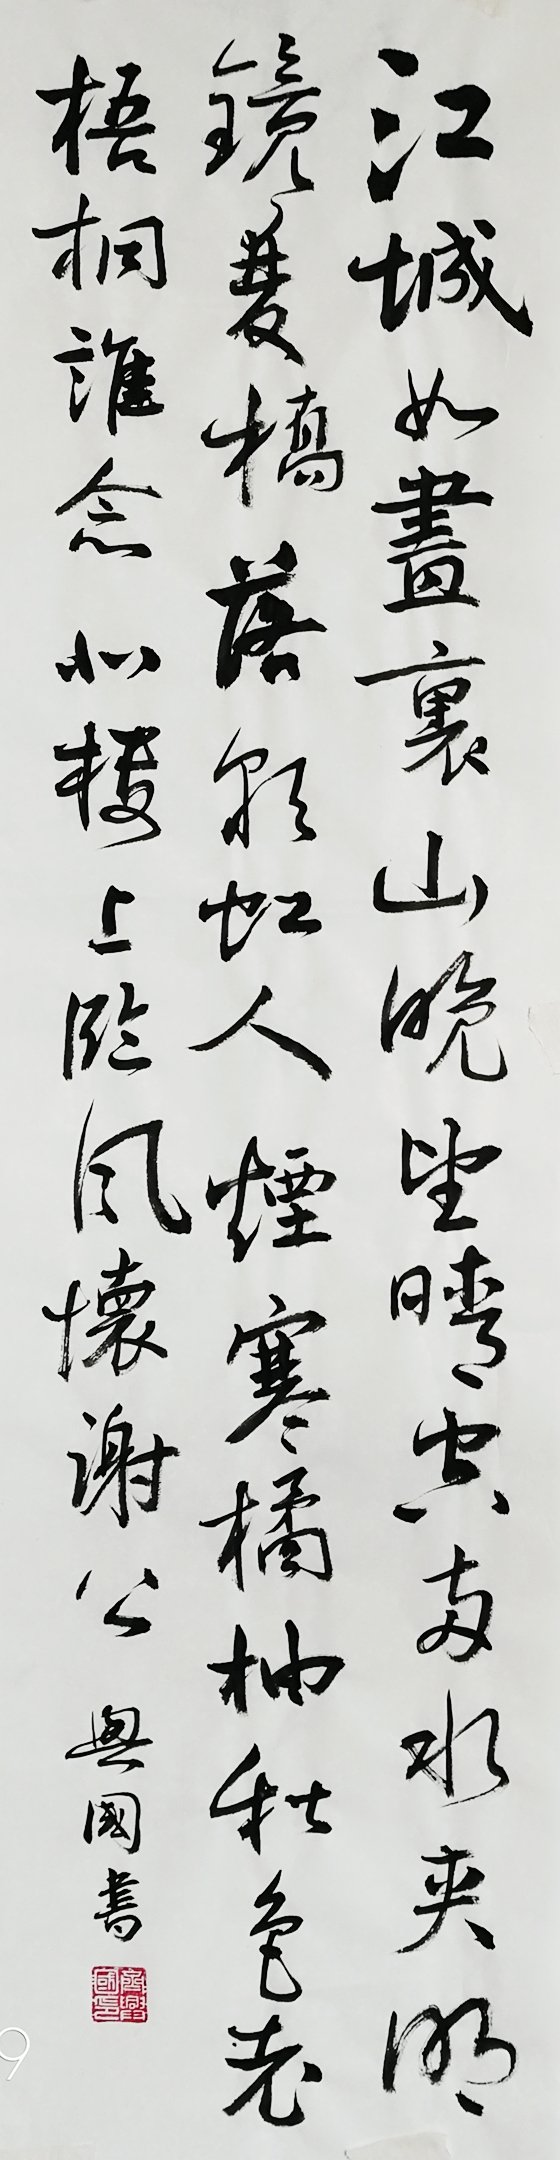 江城如畫裏山晚望晴空兩水夾明
鏡雙橋落彩虹人煙寒橘柚秋色老
梧桐誰念北樓上臨風懷謝公
興國書
9